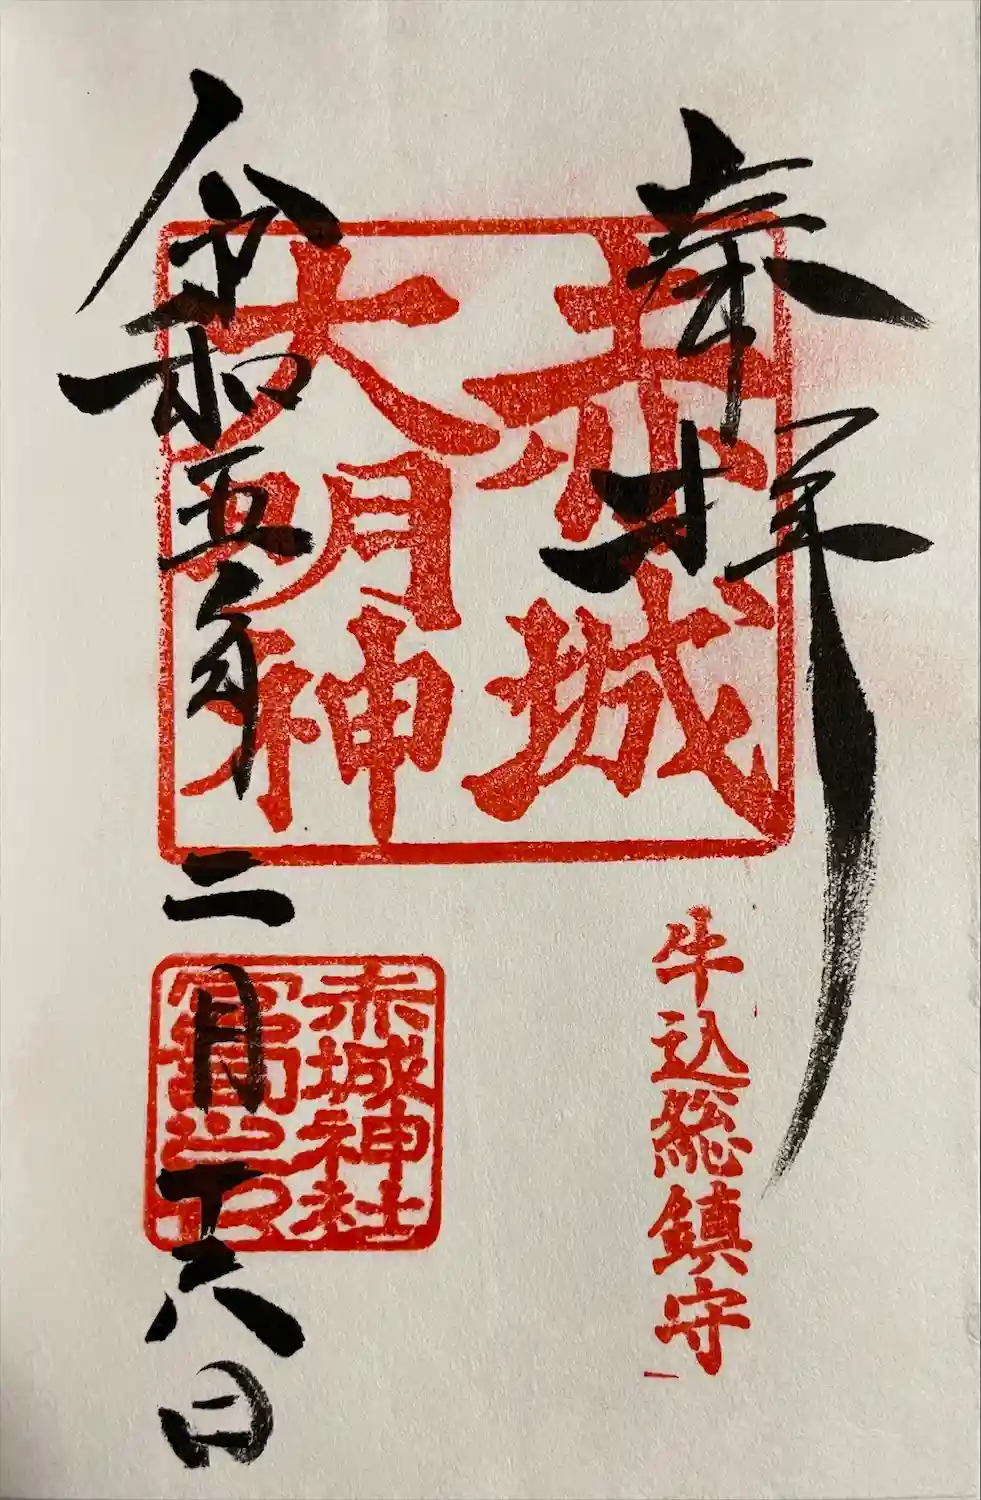 奉拝
赤城
大明神
牛込総鎮守
赤城神社
令和五年二月十六日